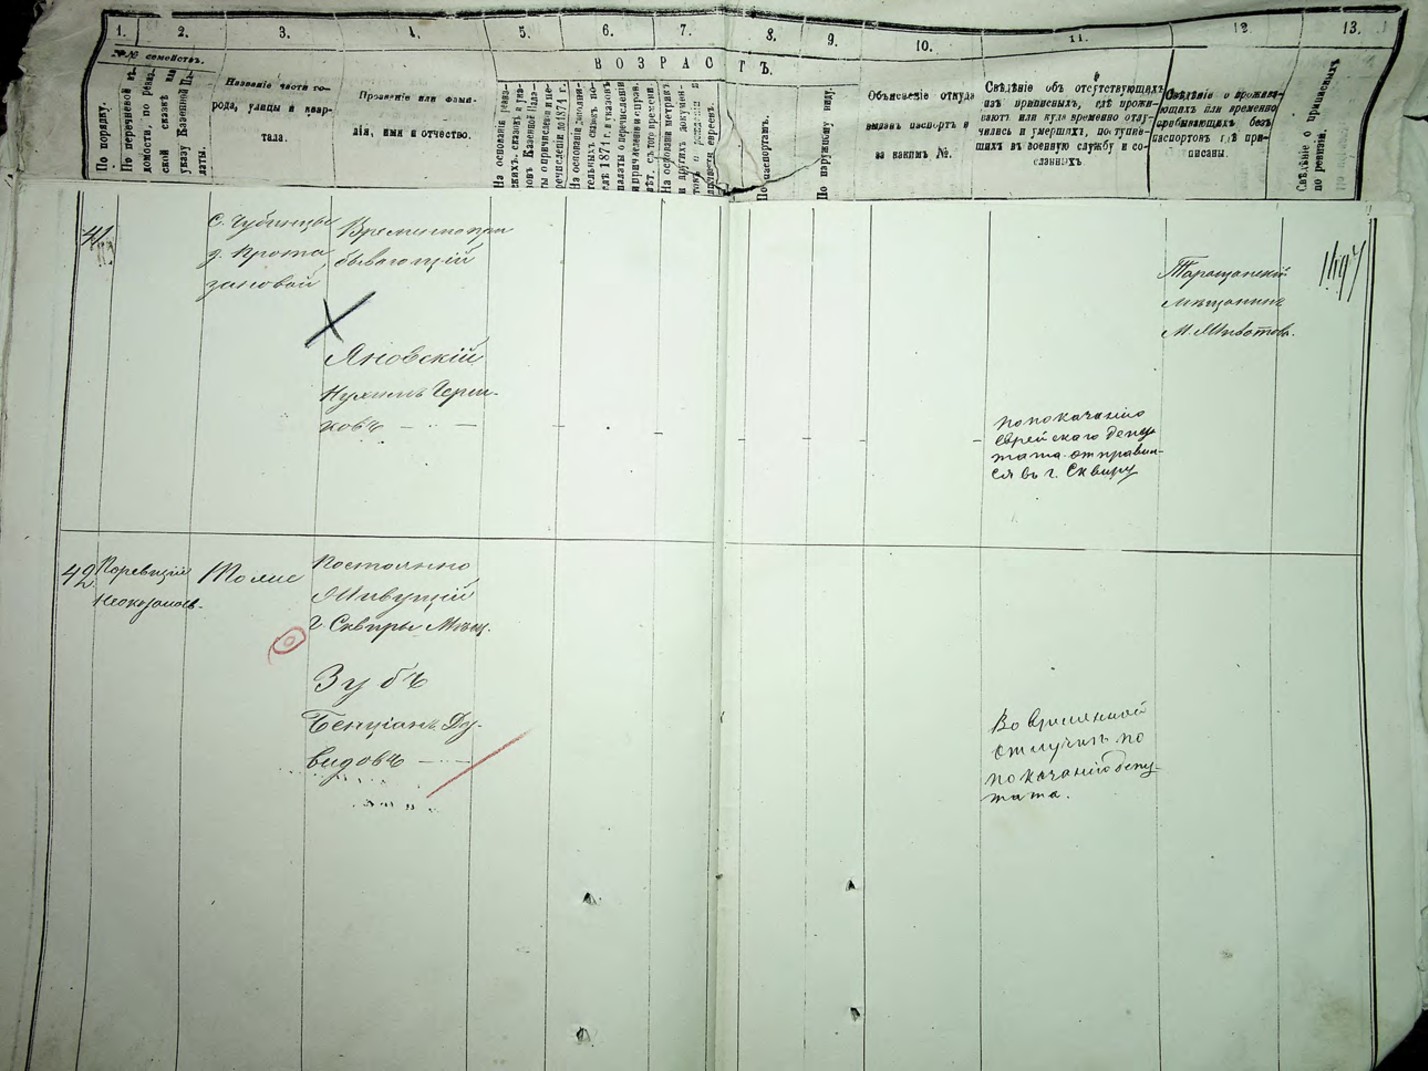 1. 2. 3. 4. 5. 6. 7. 8. 9. 10. 11. 12. 13.
№№ семействъ.
ВОЗРАСТЪ.
По порядку.
По перечневой вѣ-
домости, по ревиз-
ской сказкѣ или
указу Казенной Па-
латы.
Названіе части го-
рода, улицы и квар-
тала.
Прозваніе или фами-
лія, имя и отчество.
На основаніи ревиз-
скихъ сказокъ и ука-
зовъ Казенной Пала-
ты о причисленіи и пе-
речисленіи до 1871 г.
На основаніи дополни-
тельныхъ сказокъ по-
слѣ 1871 г. и указовъ
палаты о перечисленіи
и причисленіи и справ.
лѣт. съ того времени.
На основаніи метрикъ
и другихъ докумен-
товъ о рожденіи и
евреевъ.
По паспортамъ.
По наружному виду.
Объясненіе откуда
выданъ паспортъ и
за какимъ №.
Свѣдѣніе объ отсутствующихъ
изъ приписныхъ, гдѣ прожи-
ваютъ или куда временно отлу-
чились и умершихъ, поступив-
шихъ въ военную службу и со-
сланныхъ
Свѣдѣніе о прожива-
ющихъ или временно
пребывающихъ безъ
паспортовъ гдѣ при-
писаны.
Свѣдѣніе о приписныхъ
по ревизіи.
41
С. Чубинцы
д. Прота
зановой
Временно пре
бывающій
Яновскій
Нухимъ Герш-
ковъ
по показанію
Еврейскаго депу-
тата отправил-
ся въ г. Сквиру
Таращанскій
мѣщанинъ
М. Животовъ.
42
По ревизіи
не оказалось.
Тоже
Постоянно
Живущій
г. Сквиры Мѣщ.
Зубъ
Бенціонъ Ду-
видовъ
Во временной
отлучкѣ по
показанію депу-
тата.